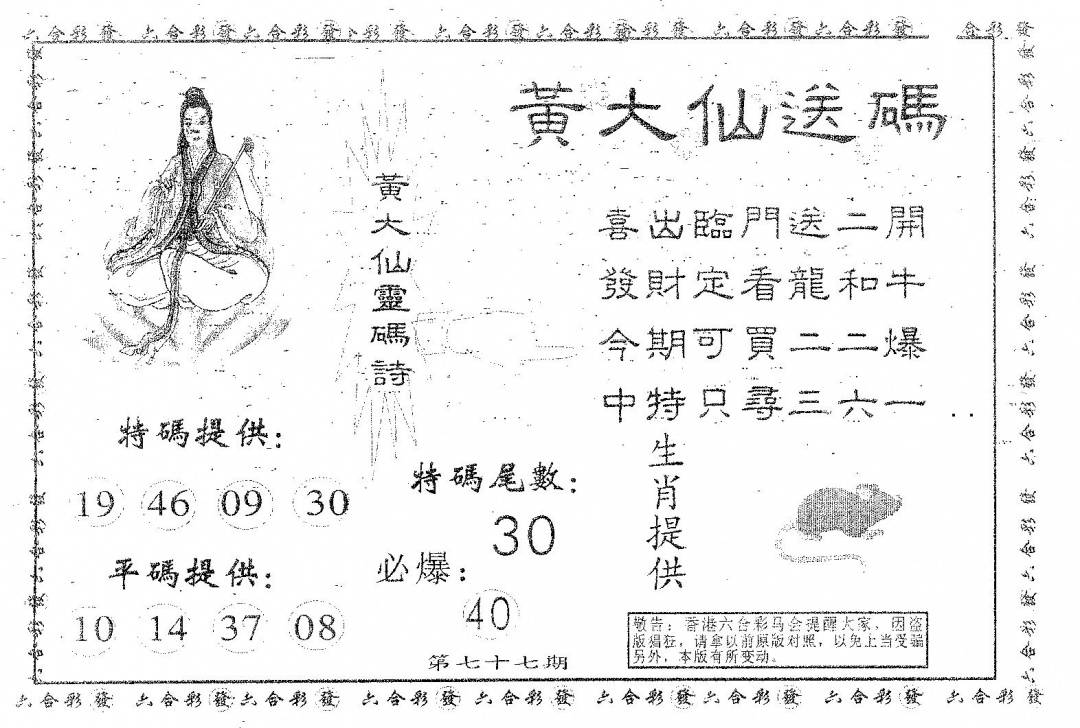 六合彩發 六合彩發六合彩發六彩發 六合彩發六合彩發合彩發 六合彩發六合彩發 合彩發
黃大仙送碼
黃大仙靈碼詩
喜出臨門送二開
發財定看龍和牛
今期可買二二爆
中特只尋三六一
特碼提供:
19 46 09 30
平碼提供:
10 14 37 08
特碼尾數:
30
必爆:
40
第七十七期
生肖提供
敬告:香港六合彩马会提醒大家,因盗
版猖狂,请拿以前原版对照,以免上当受骗
另外,本版有所变动。
六合彩發 六合彩發六合彩發 六合彩發六合彩發 六合彩發六合彩發 六合彩發 六合彩發